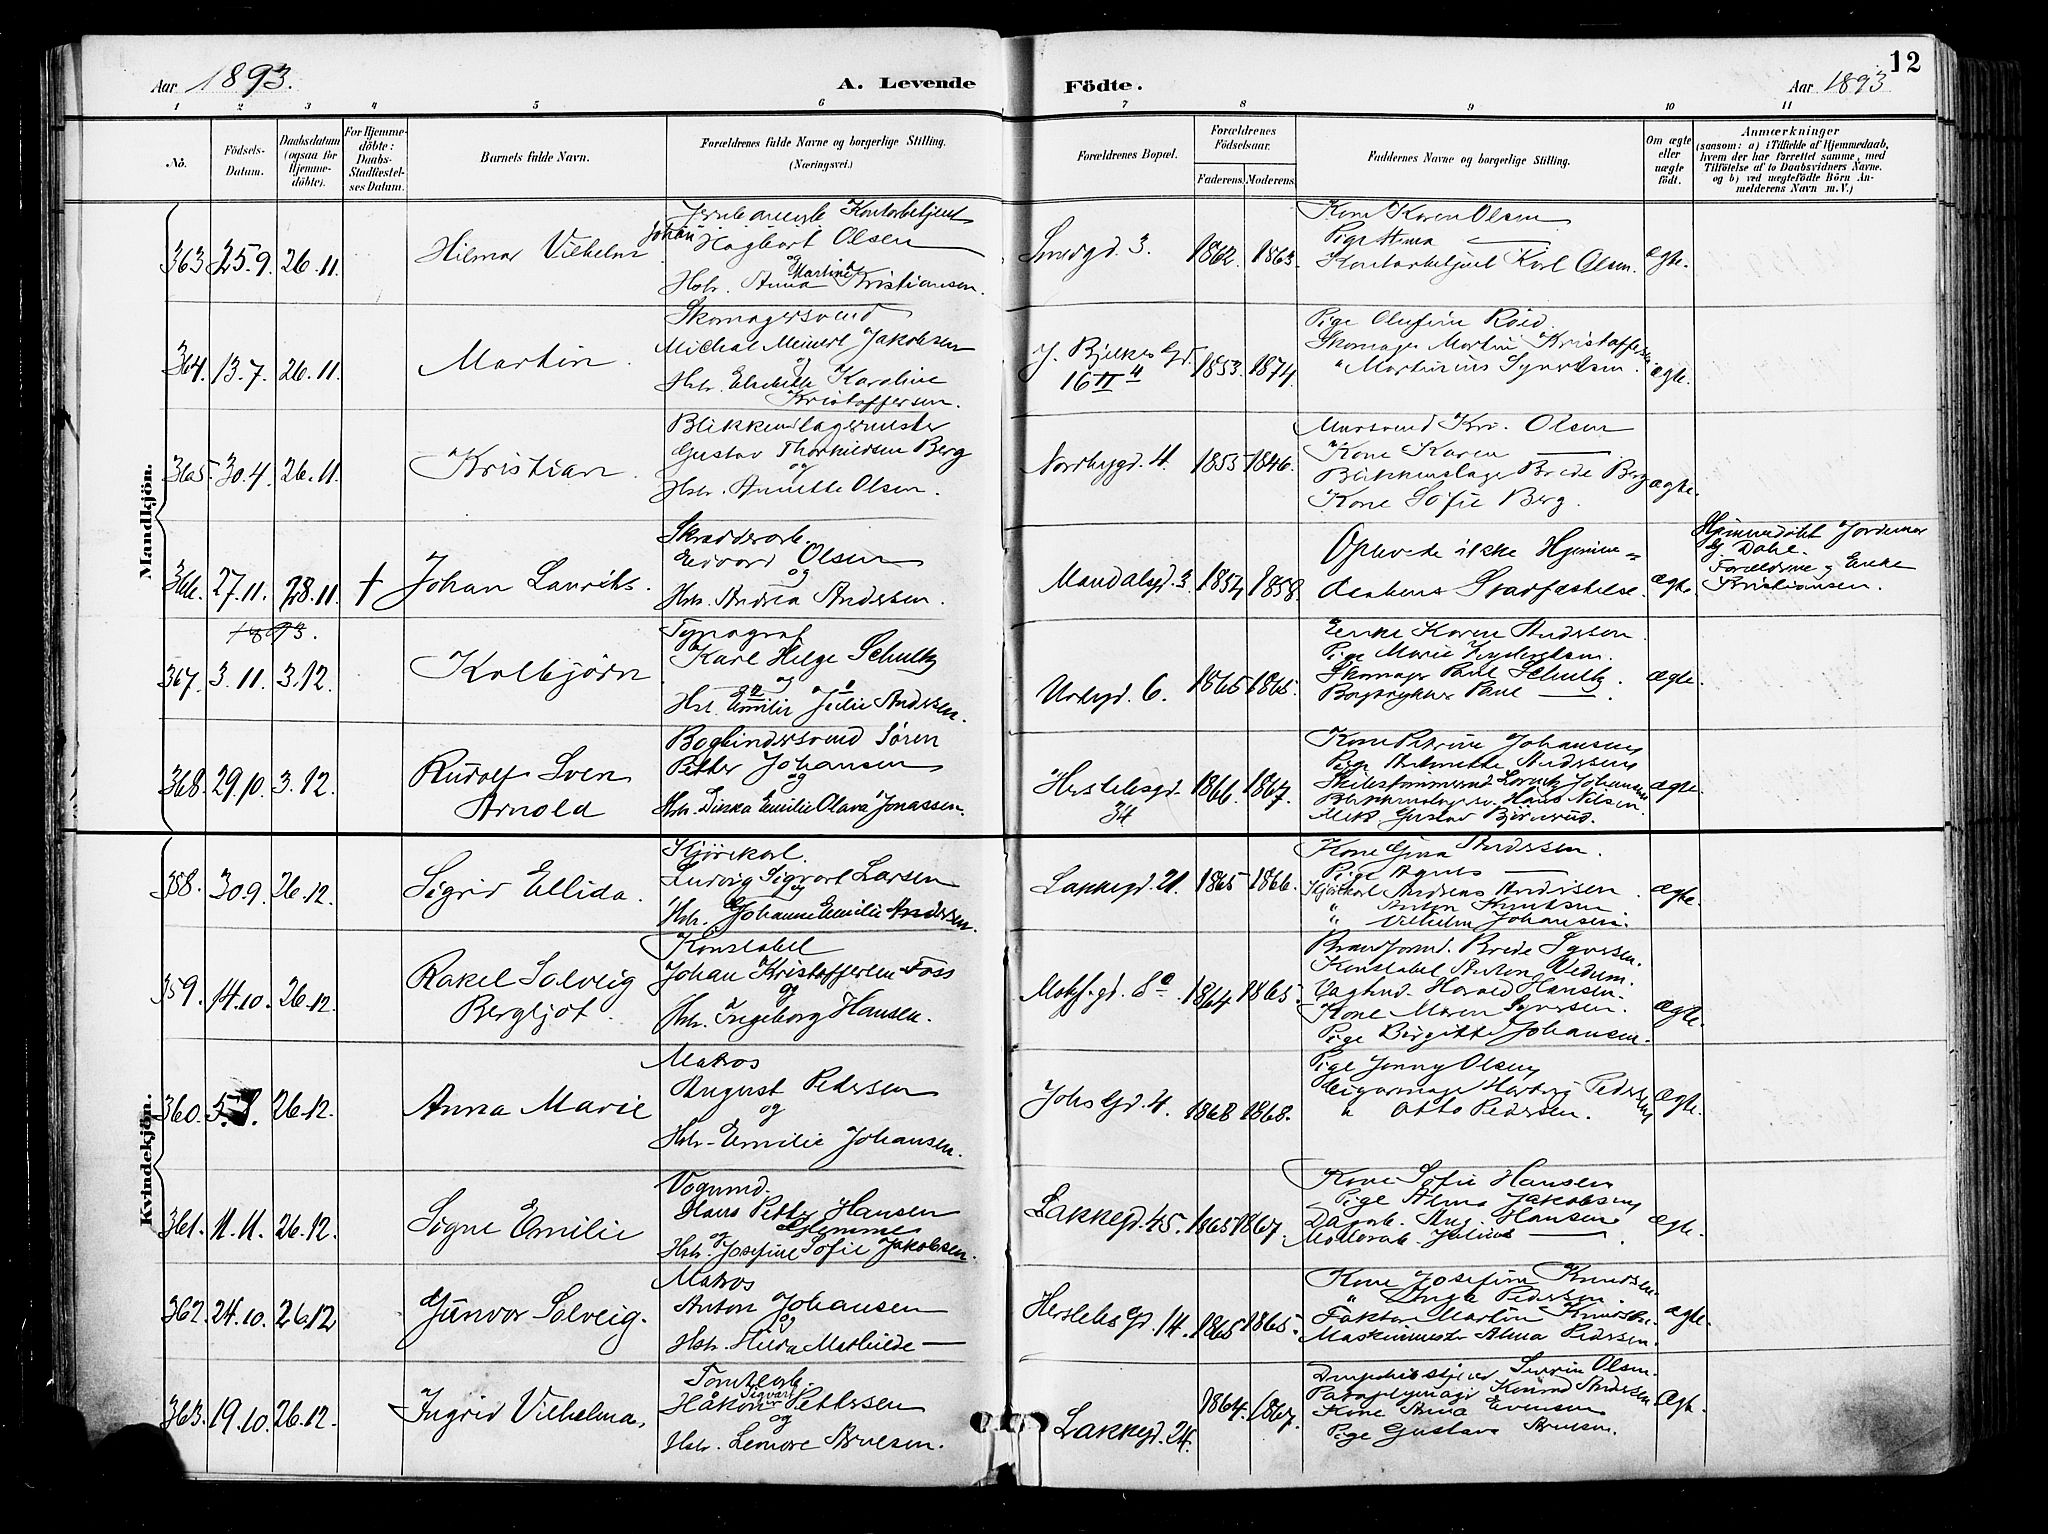 12
Aar 1893.
A. Levende
Födte.
Aar 1893
1 2 3 4 5 6 7 8 9 10 11
No.
Födsels-Datum.
Daabsdatum (ogsaa for Hjemmedöbte).
For Hjemmedöbte: Daabs-Stadfæstelses Datum.
Barnets fulde Navn.
Forældrenes fulde Navne og borgerlige Stilling.
(Næringsvei.)
Forældrenes Bopæl.
Forældrenes Födselsaar.
Faderens. Moderens.
Faddernes Navne og borgerlige Stilling.
Om ægte eller uægte födt.
Anmærkninger
(saasom: a) i Tilfælde af Hjemmedaab, hvem der har forrettet samme, med Tilföielse af to Daabsvidners Navne. og b) ved uægtefödte Börn Anmelderens Navn m. V.)
Mandkjön.
363 25.9. 26.11. Hilmar Vilhelm
Kontorbetjent
Johan Hagbart Olsen
og
Hstr. Anna Martine Kristiansen.
Smedgd. 3. 1862. 1863.
Kone Karen Olsen
Pige Anna —
Kontorbetjent Karl Olsen.
ægte.
364. 13.7. 26.11. Martin.
Skomagersvend
Michal Meinert Jakobsen
og
Hstr. Elisabeth Karoline
Kristoffersen.
J. Bjelkes Gd. 16 II 4 1853. 1874.
Pige Olufine Röed.
Skomager Martin Kristoffersen
" Martinius Syvertsen.
ægte.
365. 30.4. 26.11. Kristian.
Blikkenslagermester
Gustav Berg
og
Hstr. Annette Olsen.
Nordbygd. 4. 1855 1846.
Mursvend Kr. Olsen
Kone Karen —
Blikkenslager Brede Berg
Kone Sofie Berg.
ægte.
366. 27.11. 28.11. † Johan Lauritz.
Skrædderarb.
Edvard Olsen
og
Hstr. Andrea Andersen.
Mandalsgd. 3. 1854 1858.
Oplevede ikke Hjemme=
daabens Stadfæstelse.
ægte.
Hjemmedöbt Jordemor
Dahl.
Forældrene og Enke
Kristiansen.
1893.
367. 3.11. 3.12. Kolbjörn
Typograf
Karl Helge Schultz
og
Hstr. Emilie Julie Andersen.
Urtegd. 6. 1865 1865.
Enke Karen Andersen.
Pige Marie
Skomager Paul Schultz.
Bogtrykker Paul —
ægte.
368. 29.10. 3.12. Rudolf Sven
Arnold
Bogbindersvend Sören
Petter Johansen
og
Hstr. Emilie Olava Jonassen.
Herslebsgd. 34 1866. 1867.
Kone Petrine Johansen
Pige Antonette Andersen
Skibstömmermd Lorentz Johansen
Blikkenslagersv. Hans Nilsen
Gustav Björnerud.
ægte.
Kvindekjön.
358. 30.9. 26.12. Sigrid Ellida.
Kjörekarl.
Ludvig Sigvart Larsen
og
Hstr. Johanne Emilie Andersen.
Lakkegd. 21. 1865 1866.
Kone Gina Andersen.
Pige Agnes —
Kjörekarl Andreas Andersen
" Anton Knutsen.
" Vilhelm Johansen.
ægte.
359. 14.10. 26.12. Rakel Solveig
Bergljot.
Konstabel
Johan Kristoffersen Foss
og
Hstr. Ingeborg Hansen.
Motzf.gd. 8a. 1864 1865.
Brandformd. Brede Syversen.
Konstabel Anton Vedum.
Vagtmd. Harald Hansen.
Kone Maren Syversen.
Pige Birgitte Johansen.
ægte.
360. 26.12. Anna Marie
Matros
August Pedersen
og
Hstr. Emilie Johansen.
Johs Gd. 4. 1868 1868.
Pige Jenny Olsen
Cigarmager Hartvig Pedersen
" Otto Pedersen.
ægte.
361. 11.11. 26.12. Signe Emilie
Vognmd.
Hans Petter Hansen
Glemme
og
Hstr. Josefine Sofie Jakobsen.
Lakkegd. 45. 1865 1867.
Kone Sofie Hansen
Pige Alma Jakobsen
Dagarb. Aug. Hansen
Julius —
ægte.
362. 24.10. 26.12 Gunvor Solveig.
Matros
Anton Johansen
og
Hstr. Hilda Mathilde —
Herslebs Gd. 14. 1865 1865.
Kone Josefine Knudsen
" Inga Pedersen.
Faktor Martin Knudsen.
Maskinmester Alma Pedersen.
ægte.
363. 19.10. 26.12. Ingrid Vilhelma.
Tomtearb.
Håkon Sigvart Pettersen
og
Hstr. Lenore Arnesen.
Lakkegd. 24. 1864. 1867.
Severin Olsen.
Paraplymager Konrad Andersen
Kone Anna Evensen
Pige Gustava Arnesen.
Ægte.